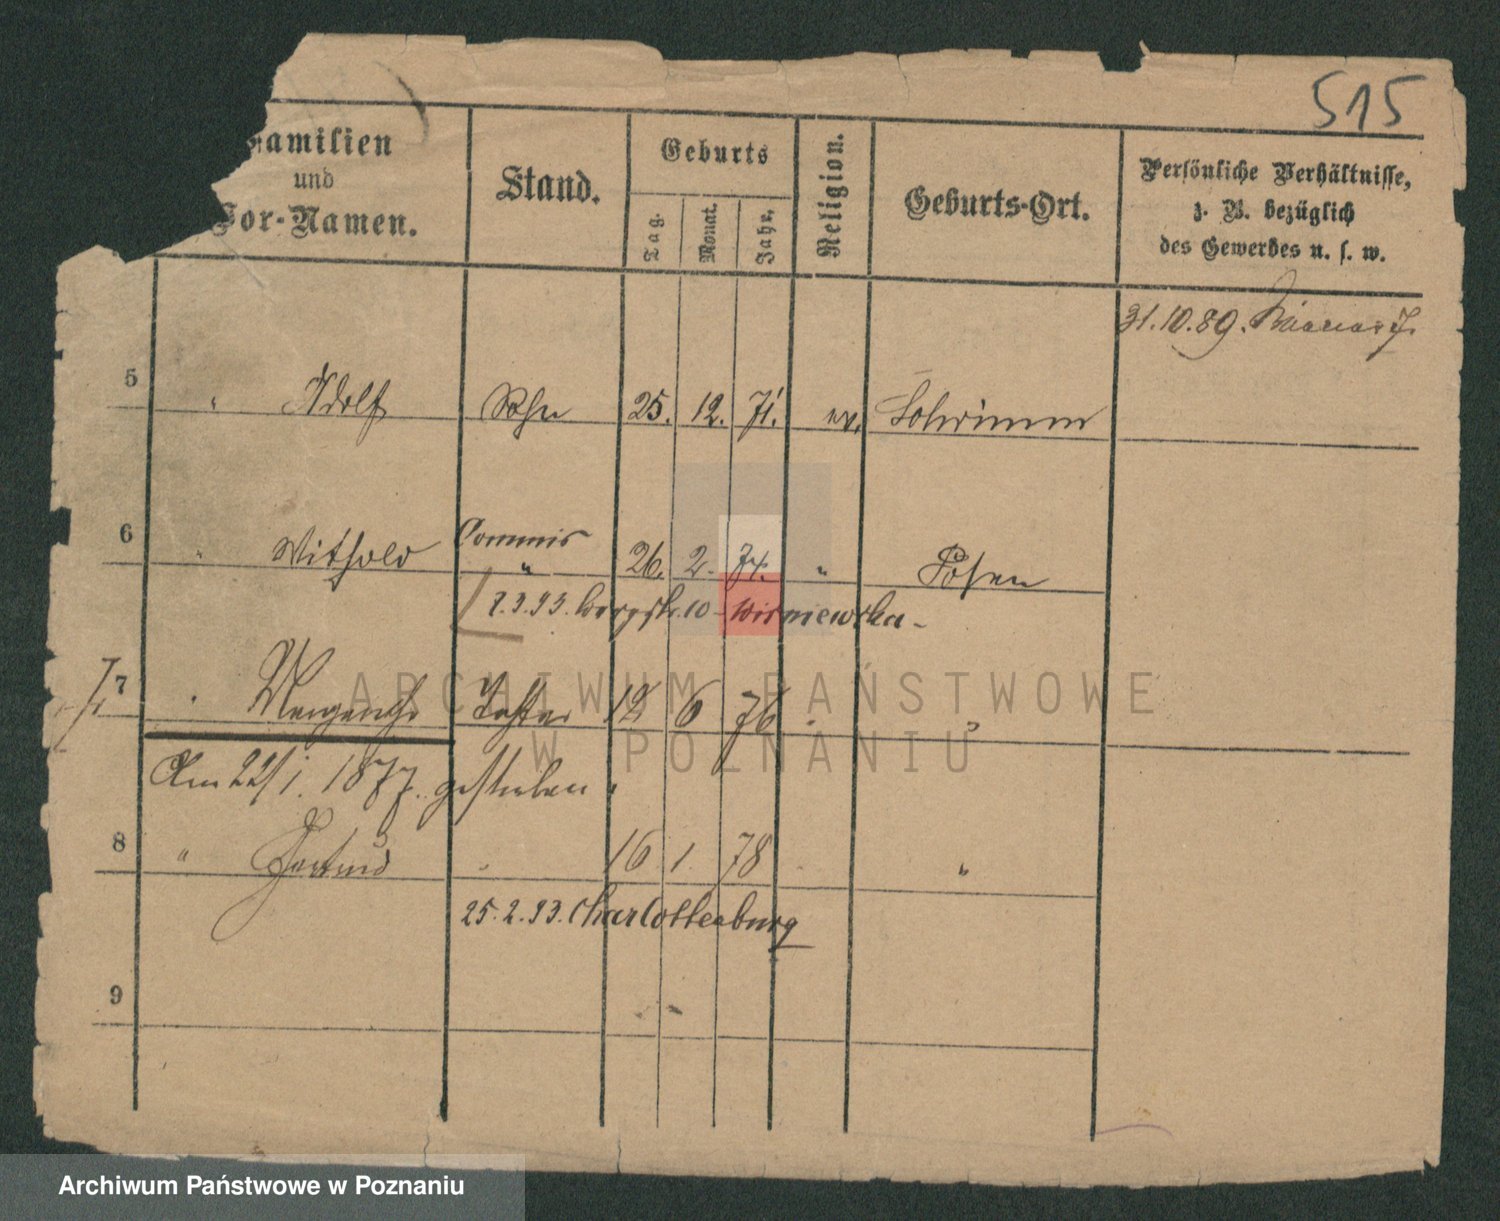 515
Familien
und
Vor-Namen.
Stand.
Geburts
Tag.
Monat.
Jahr,
Religion.
Geburts-Ort.
Persönliche Verhältnisse,
z. B. bezüglich
des Gewerbes u. s. w.
31.10.89.
5 " Adolf Sohn 25. 12. 71. ev. Schrimm
6 " Withold Commis " 26. 2. 74. " Posen
2.3.93. 10 - Wisniewska -
7 Tochter 12 6 76 "
Am 22/1. 1877. gestorben.
8 " Gertrud 16 1. 78 "
25.2.93. Charlottenburg
9
ARCHIWUM PAŃSTWOWE
W POZNANIU
Archiwum Państwowe w Poznaniu